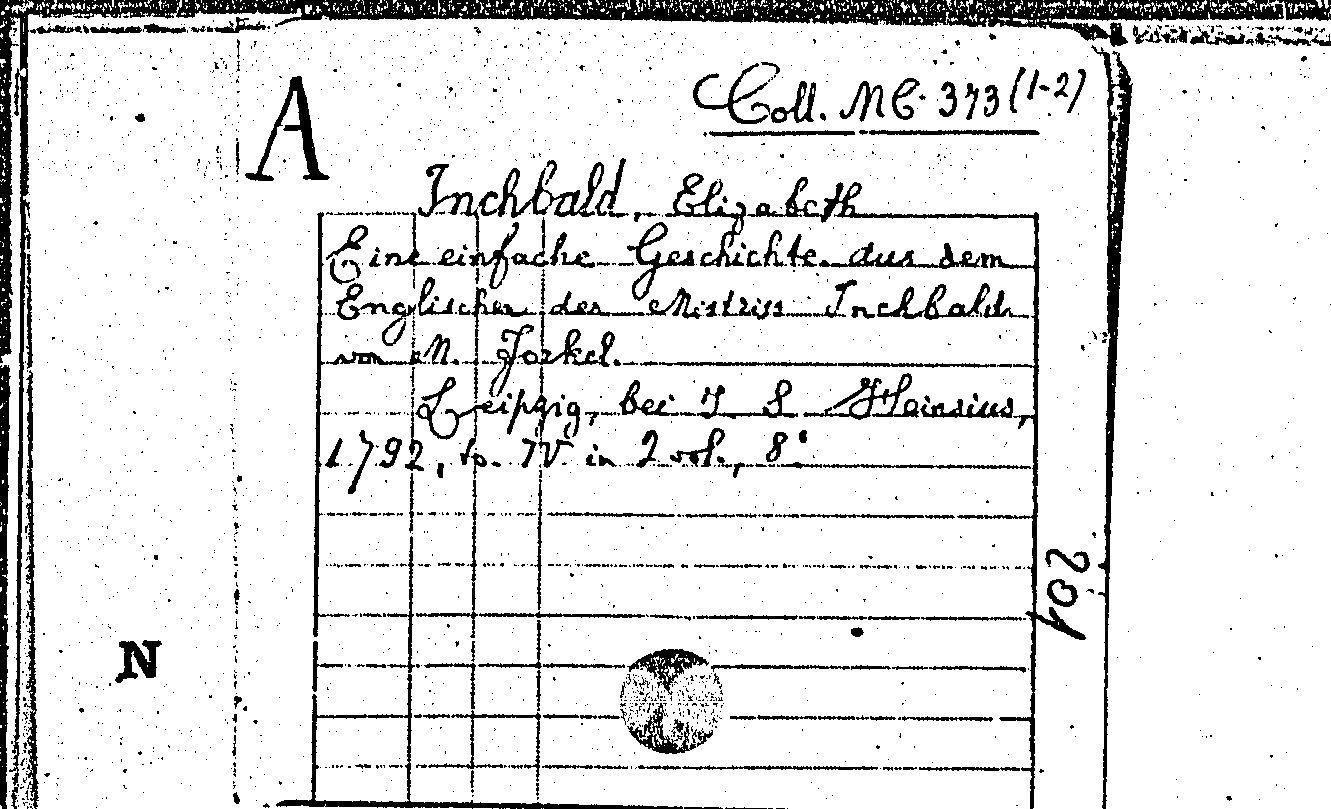 A
Coll. MC. 373 (1-2)
Inchbald, Elizabeth
Eine einfache Geschichte. aus dem
Englischen der Mistriss Inchbald
von M. Forkel.
Leipzig, bei I S Heinsius,
1792, to. IV in 2 vol., 8°
201
N